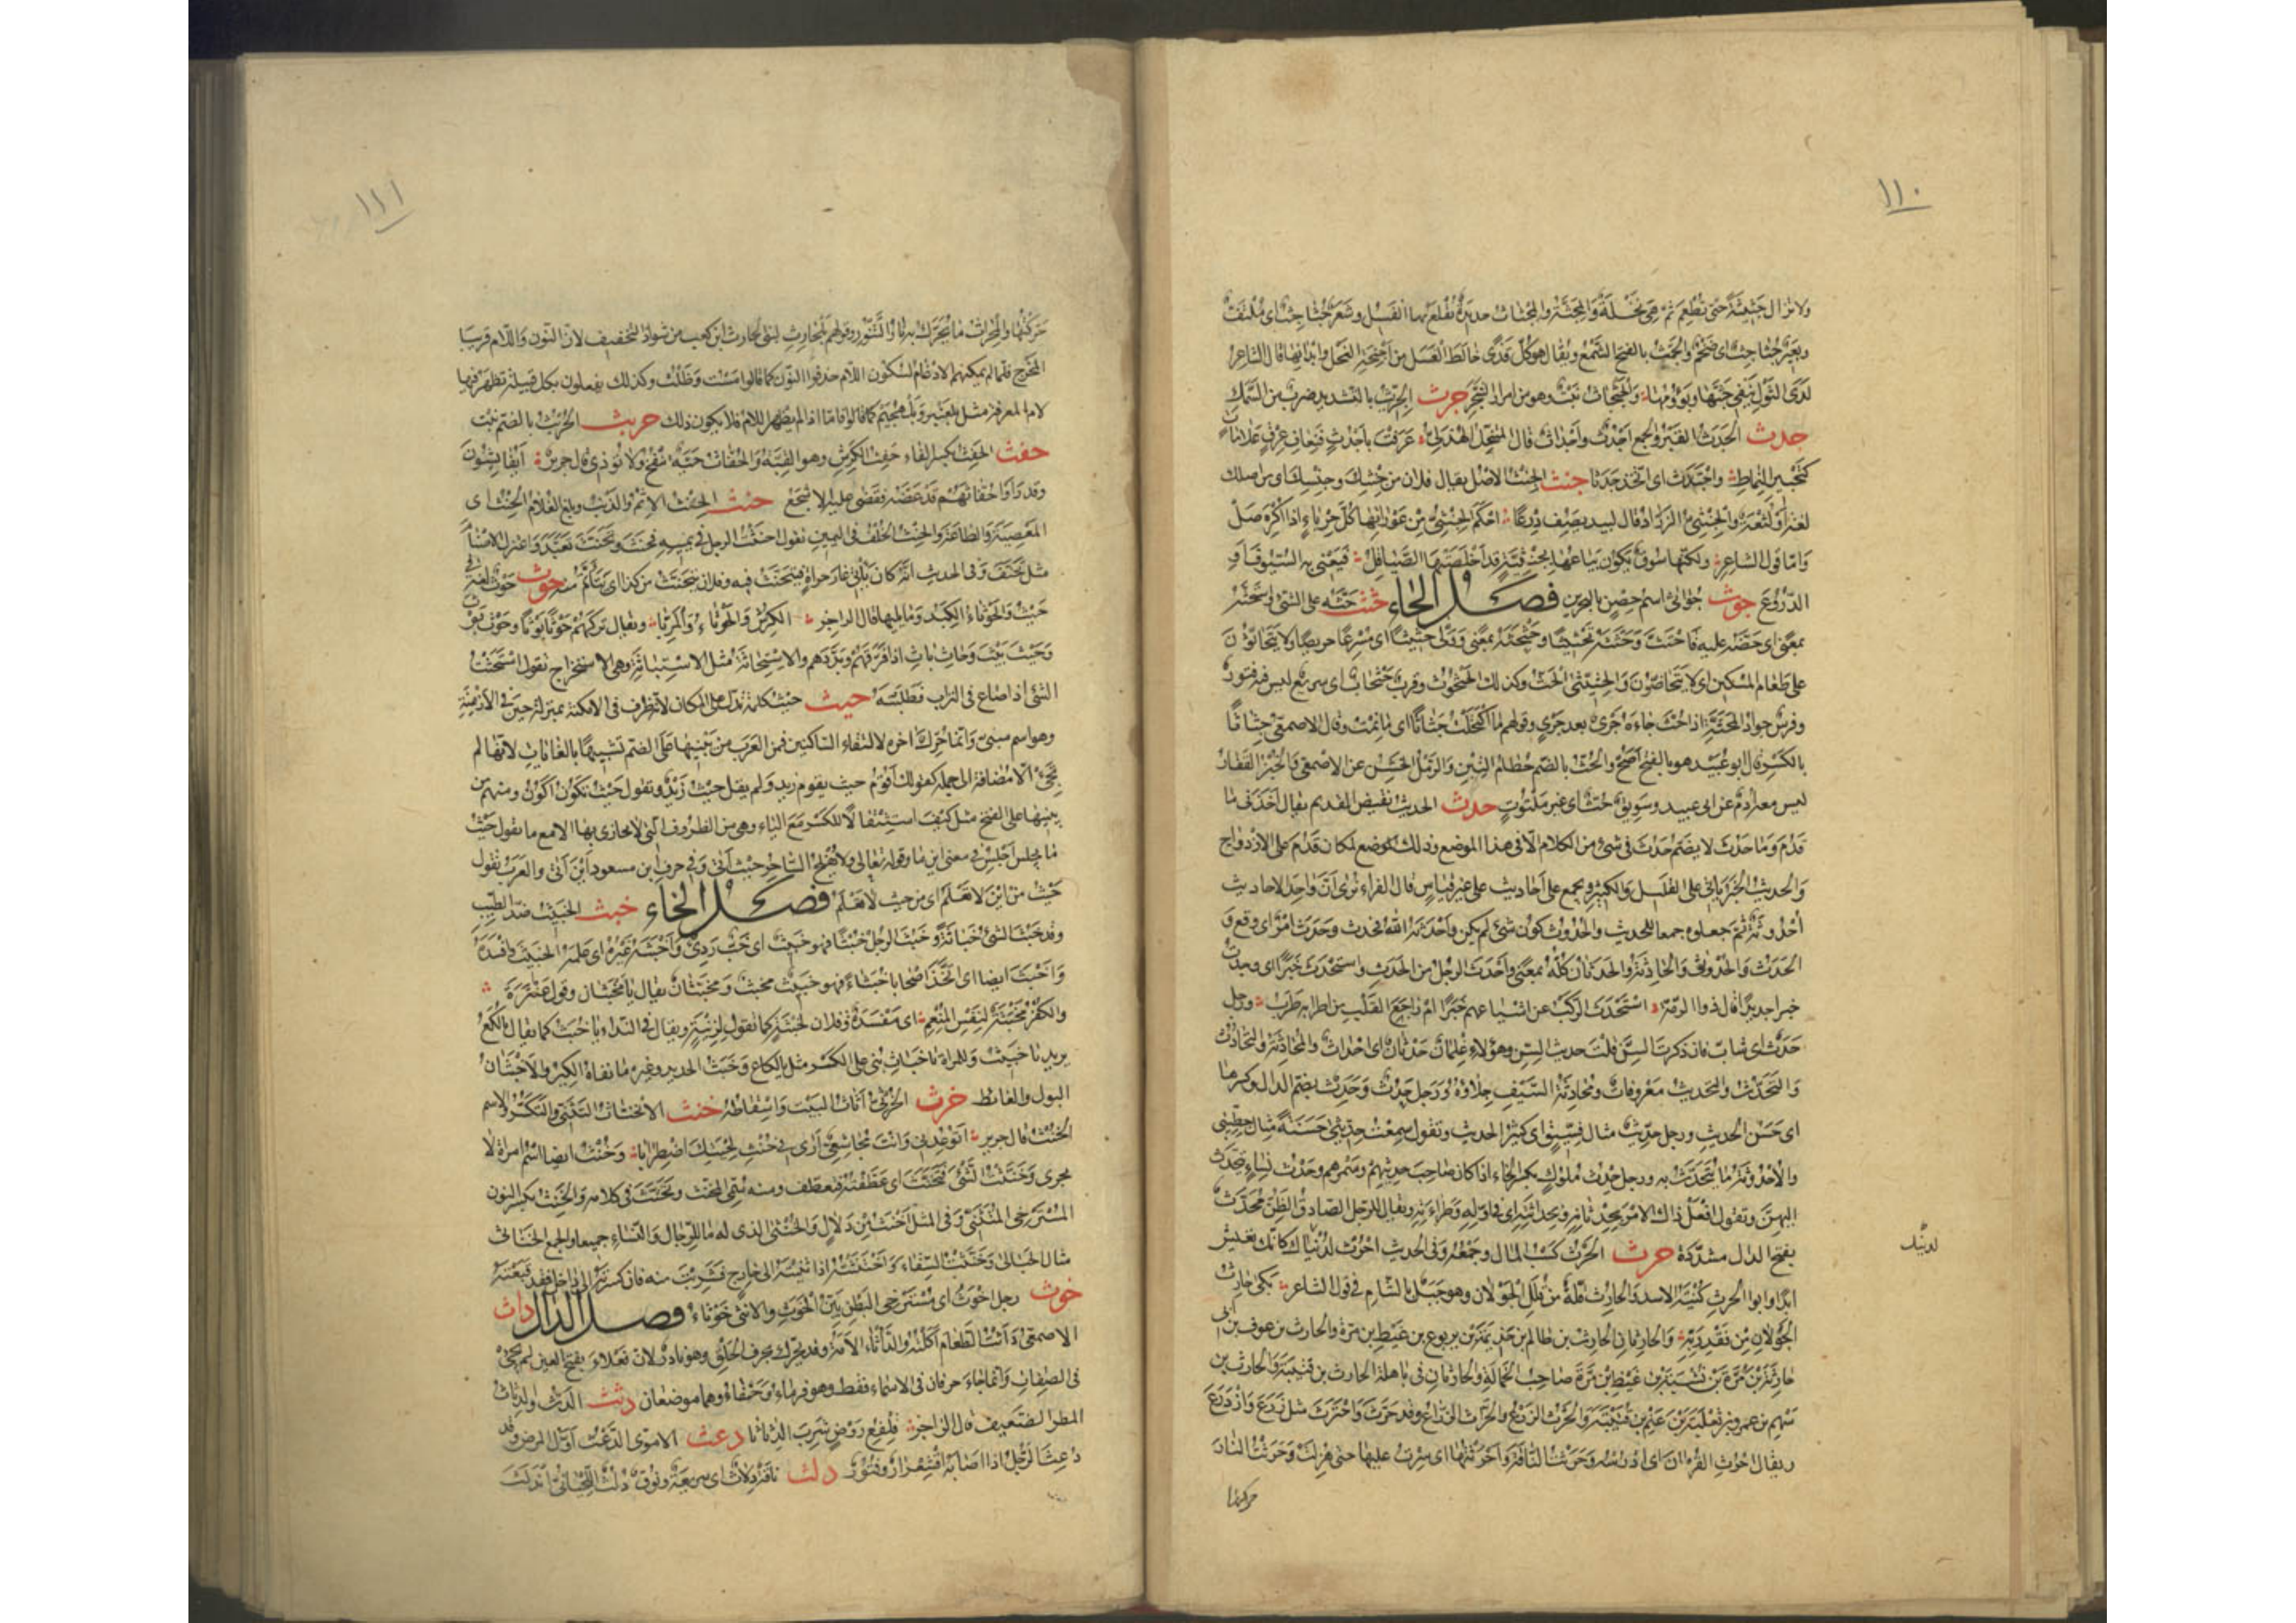 ١١٠
ولا تزال جثيثة حتى تطعم ثم هي نخلة والمجثة والمجثاث حديدة تقلع بها الفسيل وشعر جثاجث اى ملتف
وبعير جثاجث اى ضخم والجث بالفتح الشمع ويقال هو كل قذى خالط العسل من اجنحة النحل وابدانها قال الشاعر
لدى الثول ينفى جثها ويؤومها والجثجاث نبت وهو من امرار الشجر جرث الجريث بالتشديد ضرب من السمك
جدث الجدث القبر والجمع اجدث واجداث قال المتنخل الهذلى عرفت باجدث فنعاف عرق علامات
كتحبير النماط واجتدث اى اتخذ جدثا جنث الجنث الاصل يقال فلان من جنثك وجنسك اى من اصلك
لغة او لثغة والجنثى الزراد قال لبيد يصف درعا احكم الجنثى من عوراتها كل حرباء اذا اكره صل
واما قول الشاعر ولكنها سوق يكون بياعها بجنثية قد اخلصتها الصياقل فيعنى به السيوف او
الدروع جوث جواثى اسم حصن بالبحرين فصل الحاء حثث حثه على الشئ واستحثه
بمعنى اى حضه عليه فاحتث وحثثه تحثيثا وحثحثه بمعنى وولى حثيثا اى مسرعا حريصا ولا يتحاثون
على طعام المسكين اى لا يتحاضون والحثيثى الحث وكذلك الحثحوث وقرب حثحاث اى سريع ليس فيه فتور
وفرس جواد المحثة اذا حث جاءه جرى بعد جرى وقولهم ما اكتحلت حثاثا اى ما نمت وقال الاصمعى حثاثا
بالكسر قال ابو عبيد وهو بالفتح اصح والحث بالضم حطام التبن والرمل الخشن عن الاصمعى والخبز القفار
ليس معه ادم عن ابى عبيد وسويق حث اى غير ملتوت حدث الحديث نقيض القديم يقال اخذنى ما
قدم وما حدث لا يضم حدث فى شئ من الكلام الا فى هذا الموضع وذلك لموضع لمكان قدم على الازدواج
والحديث الخبر ياتى على القليل والكثير ويجمع على احاديث على غير قياس قال الفراء نرى ان واحد الاحاديث
احدوثة ثم جعلوه جمعا للحديث والحدوث كون شئ لم يكن واحدثه الله فحدث وحدث امر اى وقع و
الحدث والحدثى والحادثة والحدثان كله بمعنى واحدث الرجل من الحدث واستحدثت خبرا اى وجدت
خبرا جديدا قال ذو الرمة استحدث الركب عن اشياعهم خبرا ام راجع القلب من اطرابه طرب ورجل
حدث اى شاب فان ذكرت السن قلت حديث السن وهؤلاء غلمان حدثان اى احداث والمحادثة والتحادث
والتحدث والتحديث معروفات ومحادثة السيف جلاؤه ورجل حدث وحدث بضم الدال وكسرها
اى حسن الحديث ورجل حديث مثال فسيق اى كثير الحديث وتقول سمعت حديثى حسنة مثال خطيبى
والاحدوثة ما يتحدث به ورجل حدث ملوك بكسر الحاء اذا كان صاحب حديثهم وسمرهم وحدث نساء يتحدث
اليهن وتقول افعل ذلك الامر بحدثانه وبحداثته اى فى اوله وطراءته ويقال للرجل الصادق الظن محدث
بفتح الدال مشددة حرث الحرث كسب المال وجمعه وفى الحديث احرث لدنياك كانك تعيش
ابدا وابو الحرث كنية الاسد والحارث قلة من قلل الجولان وهو جبل بالشام فى قول الشاعر بكى حارث
الجولان من فقد ربه والحارثان الحارث بن ظالم بن جذيمة بن يربوع بن غيظ بن مرة والحارث بن عوف بن ابى
حارثة بن مرة بن نشبة بن غيظ بن مرة صاحب الحمالة والحارثان فى باهلة الحارث بن قتيبة والحارث بن
سهم بن عمرو بن ثعلبة بن غنم بن قتيبة والحرث الزرع والحراث الزراع وقد حرث واحترث مثل زرع وازدرع
ويقال احرث القرءان اى ادرسه وحرثت الناقة واحرثتها اى سرت عليها حتى هزلت وحرثت النار
حركتها
١١١
حركتها والمحراث ما يحرك به نار التنور وقولهم بلحارث لبنى الحارث ابن كعب من شواذ التخفيف لان النون واللام قريبا
المخرج فلما لم يمكنهم الادغام لسكون اللام حذفوا النون كما قالوا مست وظلت وكذلك يفعلون بكل قبيلة تظهر فيها
لام المعرفة مثل بلعنبر وبلهجيم كما قالوا فاما اذا لم يظهر اللام فلا يكون ذلك حربث الحربث بالضم نبت
حفث الحفث بكسر الفاء حفث الكرش وهو القبة والحفاث حية تنفخ ولا تؤذى قال جرير ايفايشون
وقد راوا حفاثهم قد عضه فقضى عليه الاشجع حنث الحنث الاثم والذنب وبلغ الغلام الحنث اى
المعصية والطاعة والحنث الخلف فى اليمين تقول احنثت الرجل فى يمينه فحنث وتحنث تعبد واعتزل الاصنام
مثل تحنف وفى الحديث انه كان ياتى غار حراء فيتحنث فيه وفلان يتحنث من كذا اى يتاثم منه حوث حوث لغة فى
حيث والحوثاء الكبد وما يليها قال الراجز الكرش والحوثاء والمريا ويقال تركتهم حوثا بوثا وحوث بوث
وحيث بيث وحاث باث اذا فرقهم وبددهم والاستحاثة مثل الاستباثة وهى الاستخراج تقول استحثت
الشئ اذا ضاع فى التراب فطلبته حيث حيث كلمة تدل على المكان لانه ظرف فى الامكنة بمنزلة حين فى الازمنة
وهو اسم مبنى وانما حرك اخره لالتقاء الساكنين فمن العرب من يبنيها على الضم تشبيها بالغايات لانها لم
تجئ الا مضافة الى جملة كقولك اقوم حيث يقوم زيد ولم يقل حيث زيد وتقول حيث تكون اكون ومنهم من
يبنيها على الفتح مثل كيف استثقالا للكسر مع الياء وهى من الظروف التى لا يجازى بها الا مع ما تقول حيث
ما يجلس اجلس فى معنى اين ما وقوله تعالى ولا يفلح الساحر حيث اتى وفى حرف ابن مسعود اين اتى والعرب تقول
حيث من اين لا تعلم اى من حيث لا تعلم فصل الخاء خبث الخبيث ضد الطيب
وقد خبث الشئ خباثة وخبث الرجل خبثا فهو خبيث اى خب ردى واخبثه غيره اى علمه الخبيث وافسده
واخبث ايضا اى اتخذ اصحابا خبثاء فهو خبيث مخبث ومخبثان يقال يا مخبثان وقول عنترة
والكفر مخبثة لنفس المنعم اى مفسدة وفلان لخبثة كما تقول لزنية ويقال فى النداء يا خبث كما يقال يا لكع
يريد يا خبيث وللمراة يا خباث بنى على الكسر مثل يا لكاع وخبث الحديد وغيره ما نفاه الكير والاخبثان
البول والغائط خرث الخرثى اثاث البيت واسقاطه خنث الانخناث التثنى والتكسر والاسم
الخنث قال جرير اتوعدنى وانت مجاشعى ارى فى خنث لحيتك اضطرابا وخنث ايضا اسم امراة لا
يجرى وخنثت الشئ فتخنث اى عطفته فتعطف ومنه سمى المخنث وتخنث فى كلامه والخنث بكسر النون
المسترخى المتثنى وفى المثل اخنث من دلال والخنثى الذى له ما للرجال والنساء جميعا والجمع الخناثى
مثال الحبالى وخنثت السقاء واختنثته اذا ثنيته الى خارج فشربت منه فان كسرته الى داخل فقد قبعته
خوث رجل اخوث اى مسترخى البطن بين الخوث والانثى خوثاء فصل الدال داث
الاصمعى داثت الطعام اكلته والداثاء الامة وقد يحرك بحرف الحلق وهو نادر لان فعلاء بفتح العين لم يجئ
فى الصفات وانما جاء حرفان فى الاسماء فقط وهو فرماء وجنفاء وهما موضعان دثث الدث والدثاث
المطر الضعيف قال الراجز قلفع روض شرب الدثاثا دعث الاموى الدعث اول المرض وقد
دعث الرجل اذا اصابه اقشعرار وفتور دلث ناقة دلاث اى سريعة ونوق دلث اللحيانى اندلث